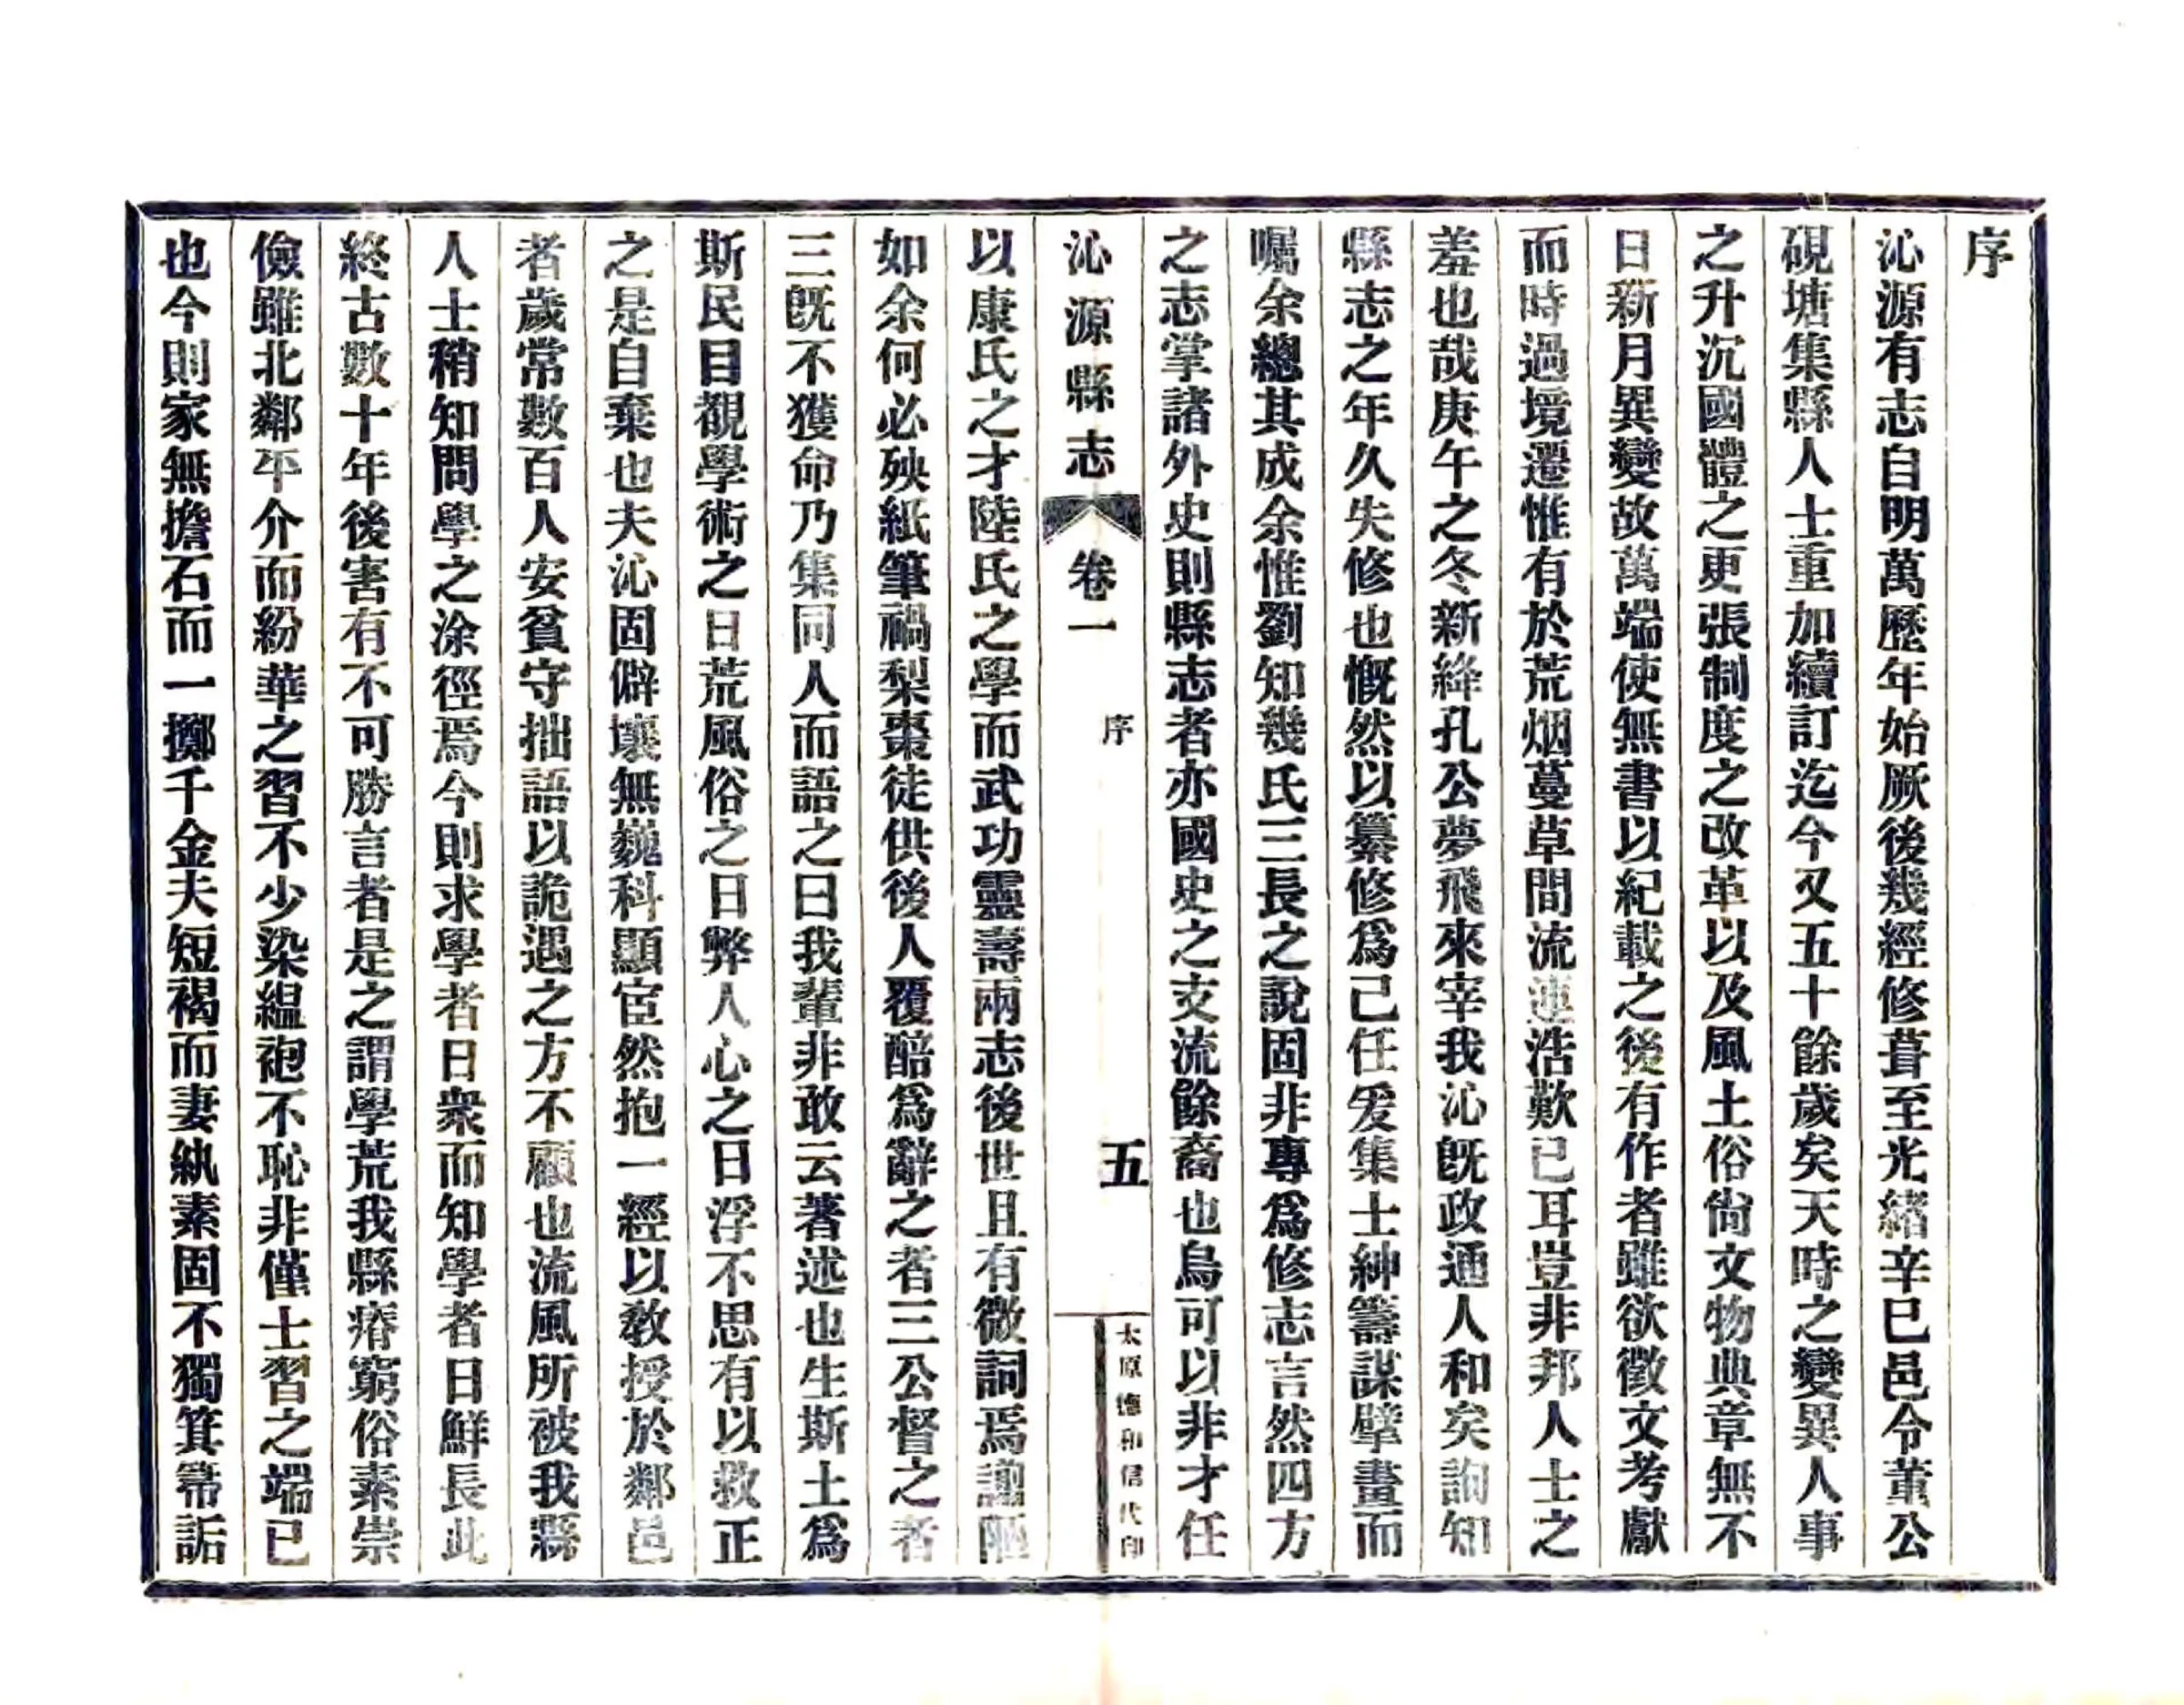 序
沁源有志自明萬歷年始厥後幾經修葺至光緒辛巳邑令董公
硯塘集縣人士重加續訂迄今又五十餘歲矣天時之變異人事
之升沉國體之更張制度之改革以及風土俗尙文物典章無不
日新月異變故萬端使無書以紀載之後有作者雖欲徵文考獻
而時過境遷惟有於荒烟蔓草間流連浩歎已耳豈非邦人士之
羞也哉庚午之冬新絳孔公夢飛來宰我沁旣政通人和矣詢知
縣志之年久失修也慨然以纂修爲己任爰集士紳籌謀擘畫而
囑余總其成余惟劉知幾氏三長之說固非專爲修志言然四方
之志掌諸外史則縣志者亦國史之支流餘裔也烏可以非才任
沁源縣志
卷一
序
五
太原德和信代印
以康氏之才陸氏之學而武功靈壽兩志後世且有微詞焉謭陋
如余何必殃紙筆禍梨棗徒供後人覆醅爲辭之者三公督之者
三旣不獲命乃集同人而語之曰我輩非敢云著述也生斯土爲
斯民目覩學術之日荒風俗之日弊人心之日浮不思有以救正
之是自棄也夫沁固僻壤無巍科顯宦然抱一經以敎授於鄰邑
者歲常數百人安貧守拙語以詭遇之方不顧也流風所被我縣
人士稍知問學之涂徑焉今則求學者日衆而知學者日鮮長此
終古數十年後害有不可勝言者是之謂學荒我縣瘠窮俗素崇
儉雖北鄰平介而紛華之習不少染縕袍不恥非僅士習之端已
也今則家無擔石而一擲千金夫短褐而妻紈素固不獨箕帚詬